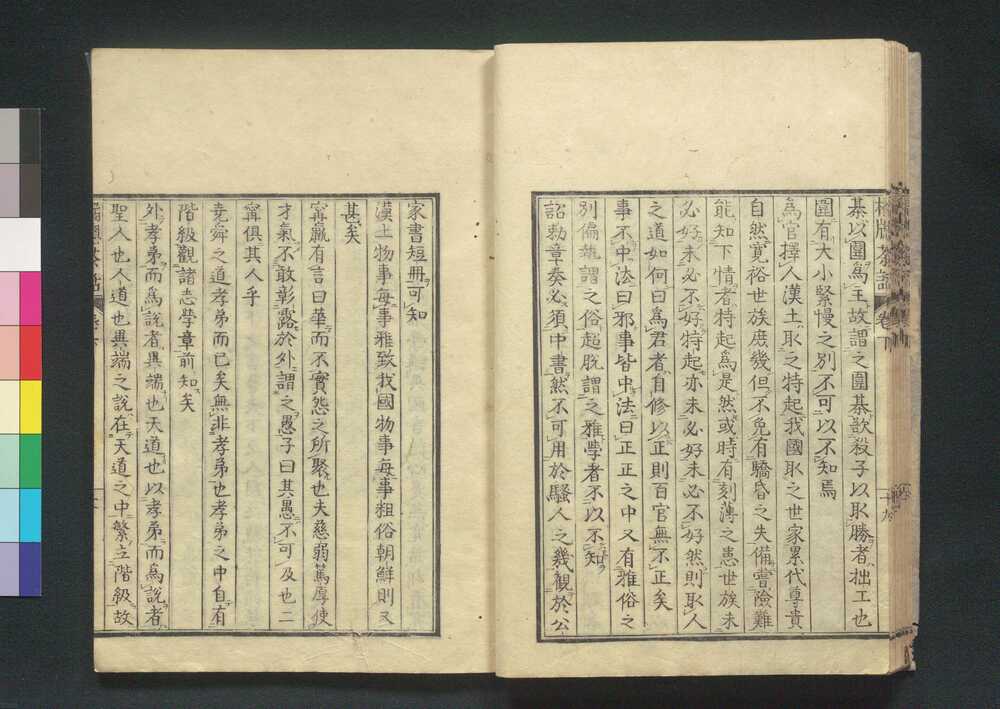 茶話 卷下 十九
棊以圍爲主故謂之圍棊歟殺子以取勝者拙工也
圍有大小緊慢之別不可以不知焉
爲官擇人漢土取之特起我國取之世家累代尊貴
自然寬裕世族庶幾但不免有驕昏之失備嘗險難
能知下情者特起爲是然或時有刻薄之患世族未
必好未必不好特起亦未必好未必不好然則取人
之道如何曰爲君者自修以正則百官無不正矣
事不中法曰邪事皆中法曰正正之中又有雅俗之
別偏執謂之俗超脱謂之雅學者不以不知
詔勅章奏必須中書然不可用於騷人之幾觀於公
家書短冊可知
漢土物事每事雅致我國物事每事粗俗朝鮮則又
甚矣
甯嬴有言曰華而不實怨之所聚也夫慈弱篤厚使
才氣不敢彰露於外謂之愚子曰其愚不可及也二
甯俱其人乎
堯舜之道孝弟而已矣無非孝弟也孝弟之中自有
階級觀諸志學章前知矣
外孝弟而爲說者異端也天道也以孝弟而爲說者
聖人也人道也異端之說在天道之中繁立階級故
茶話